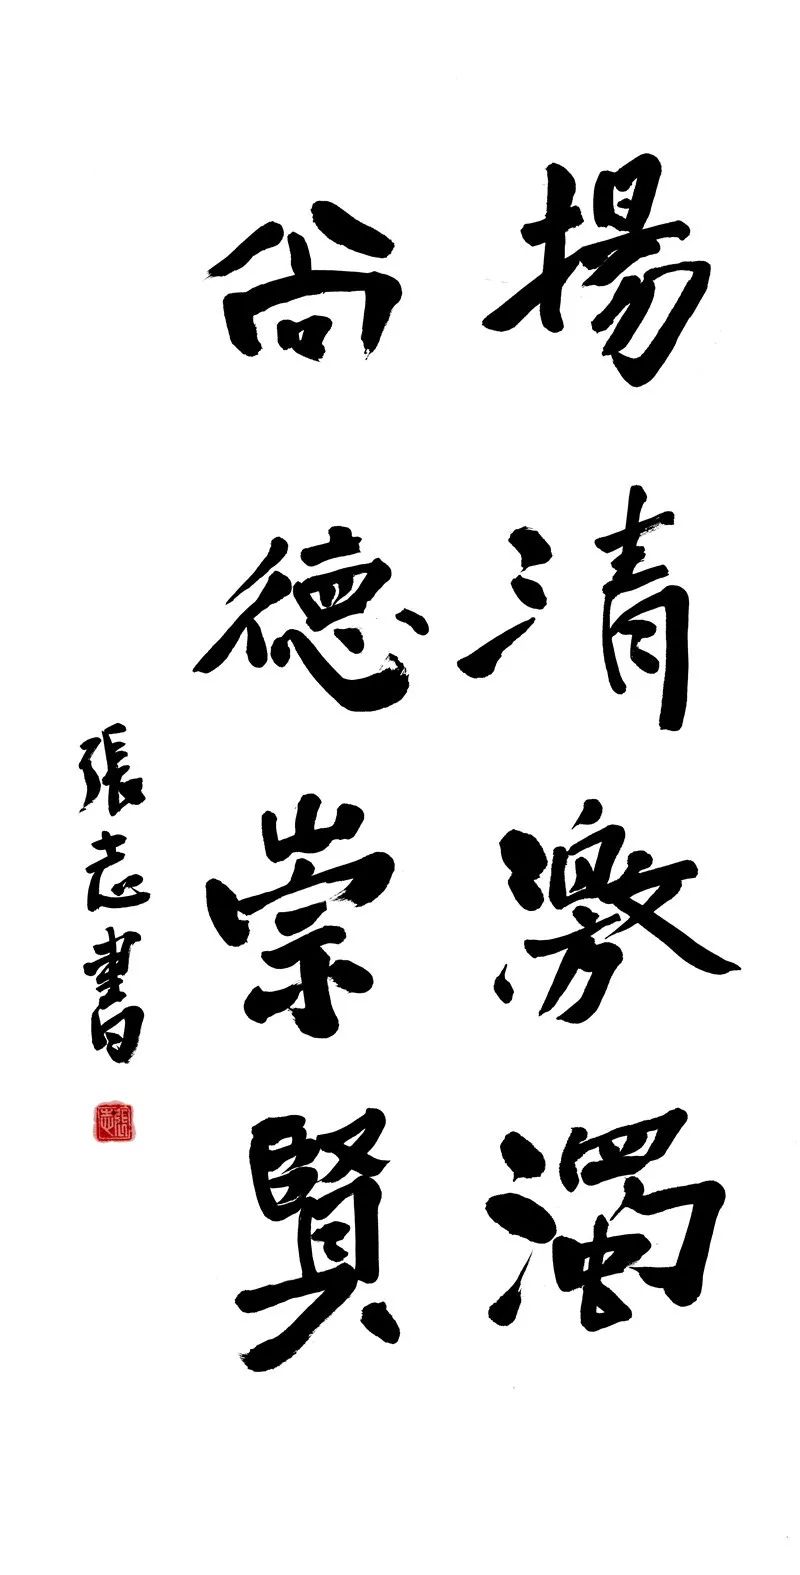 揚清激濁
尚德崇賢
張志書
張志